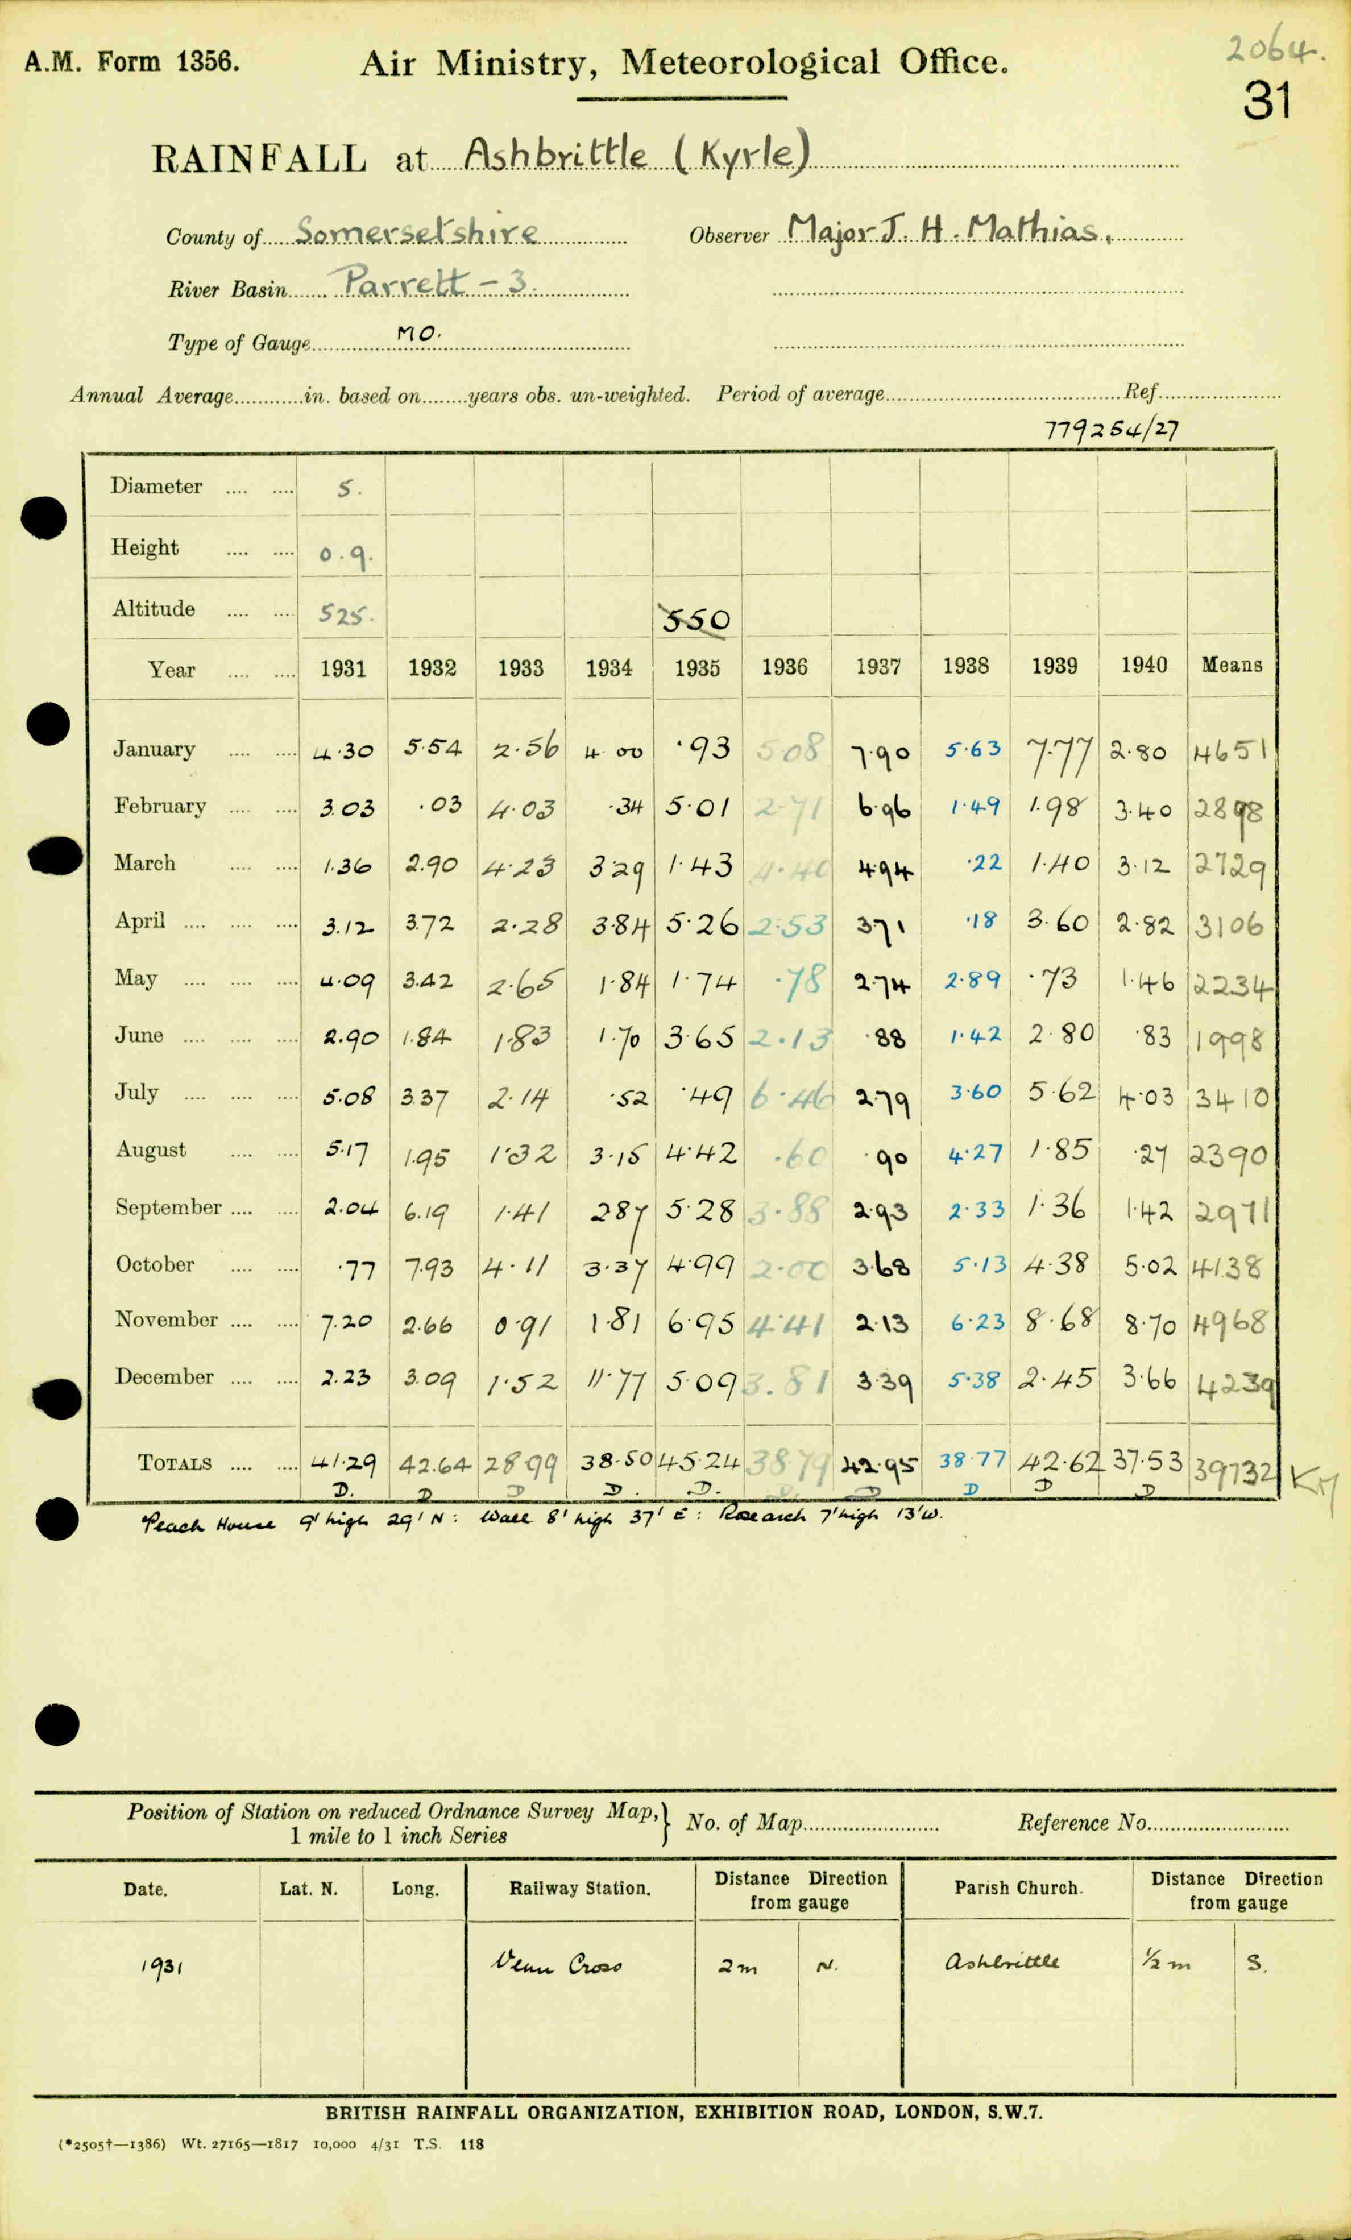 A.M. Form 1356.
Air Ministry, Meteorological Office.
2064.
31
RAINFALL at Ashbrittle (Kyrle)
County of Somersetshire Observer Major J. H. Mathias.
River Basin Parrett - 3.
Type of Gauge MO.
Annual Average in. based on years obs. un-weighted. Period of average Ref
779254/27
Diameter 5.
Height 0.9.
Altitude 525. 550
Year 1931 1932 1933 1934 1935 1936 1937 1938 1939 1940 Means
January 4.30 5.54 2.56 4 00 .93 5 08 7.90 5.63 7.77 2.80 4651
February 3.03 .03 4.03 .34 5.01 2.71 6.96 1.49 1.98 3.40 2898
March 1.36 2.90 4.23 3 29 1.43 4.40 4.94 .22 1.40 3.12 2729
April 3.12 3.72 2.28 3.84 5.26 2.53 3.71 .18 3.60 2.82 3106
May 4.09 3.42 2.65 1.84 1.74 .78 2.74 2.89 .73 1.46 2234
June 2.90 1.84 1.83 1.70 3.65 2.13 .88 1.42 2.80 .83 1998
July 5.08 3.37 2.14 .52 .49 6.46 2.79 3.60 5.62 4.03 3410
August 5.17 1.95 1.32 3.15 4.42 .60 .90 4.27 1.85 .27 2390
September 2.04 6.19 1.41 2 87 5.28 3.88 2.93 2.33 1.36 1.42 2971
October .77 7.93 4.11 3.37 4.99 2.00 3.68 5.13 4.38 5.02 4138
November 7.20 2.66 0.91 1.81 6.95 4.41 2.13 6.23 8.68 8.70 4968
December 2.23 3.09 1.52 11.77 5.09 3.81 3.39 5.38 2.45 3.66 4239
TOTALS 41.29 42.64 28 99 38.50 45.24 38 79 42.95 38 77 42.62 37.53 39732 KM
D. D D D. D. D. D D D D
Peach House 9' high 29' N: Wall 8' high 37' E: Rose arch 7' high 13' W.
Position of Station on reduced Ordnance Survey Map,} No. of Map Reference No.
1 mile to 1 inch Series
Date. Lat. N. Long. Railway Station. Distance Direction from gauge Parish Church. Distance Direction from gauge
1931 Venn Cross 2 m N. Ashbrittle ½ m S.
BRITISH RAINFALL ORGANIZATION, EXHIBITION ROAD, LONDON, S.W.7.
(*2505†—1386) Wt. 27165—1817 10,000 4/31 T.S. 118